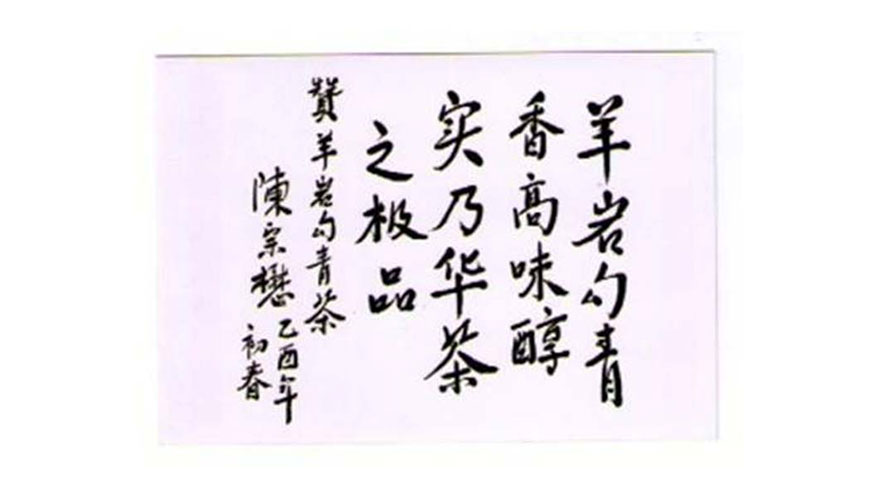 羊岩勾青
香高味醇
实乃华茶
之极品
赞羊岩勾青茶
陳宗懋
乙酉年
初春